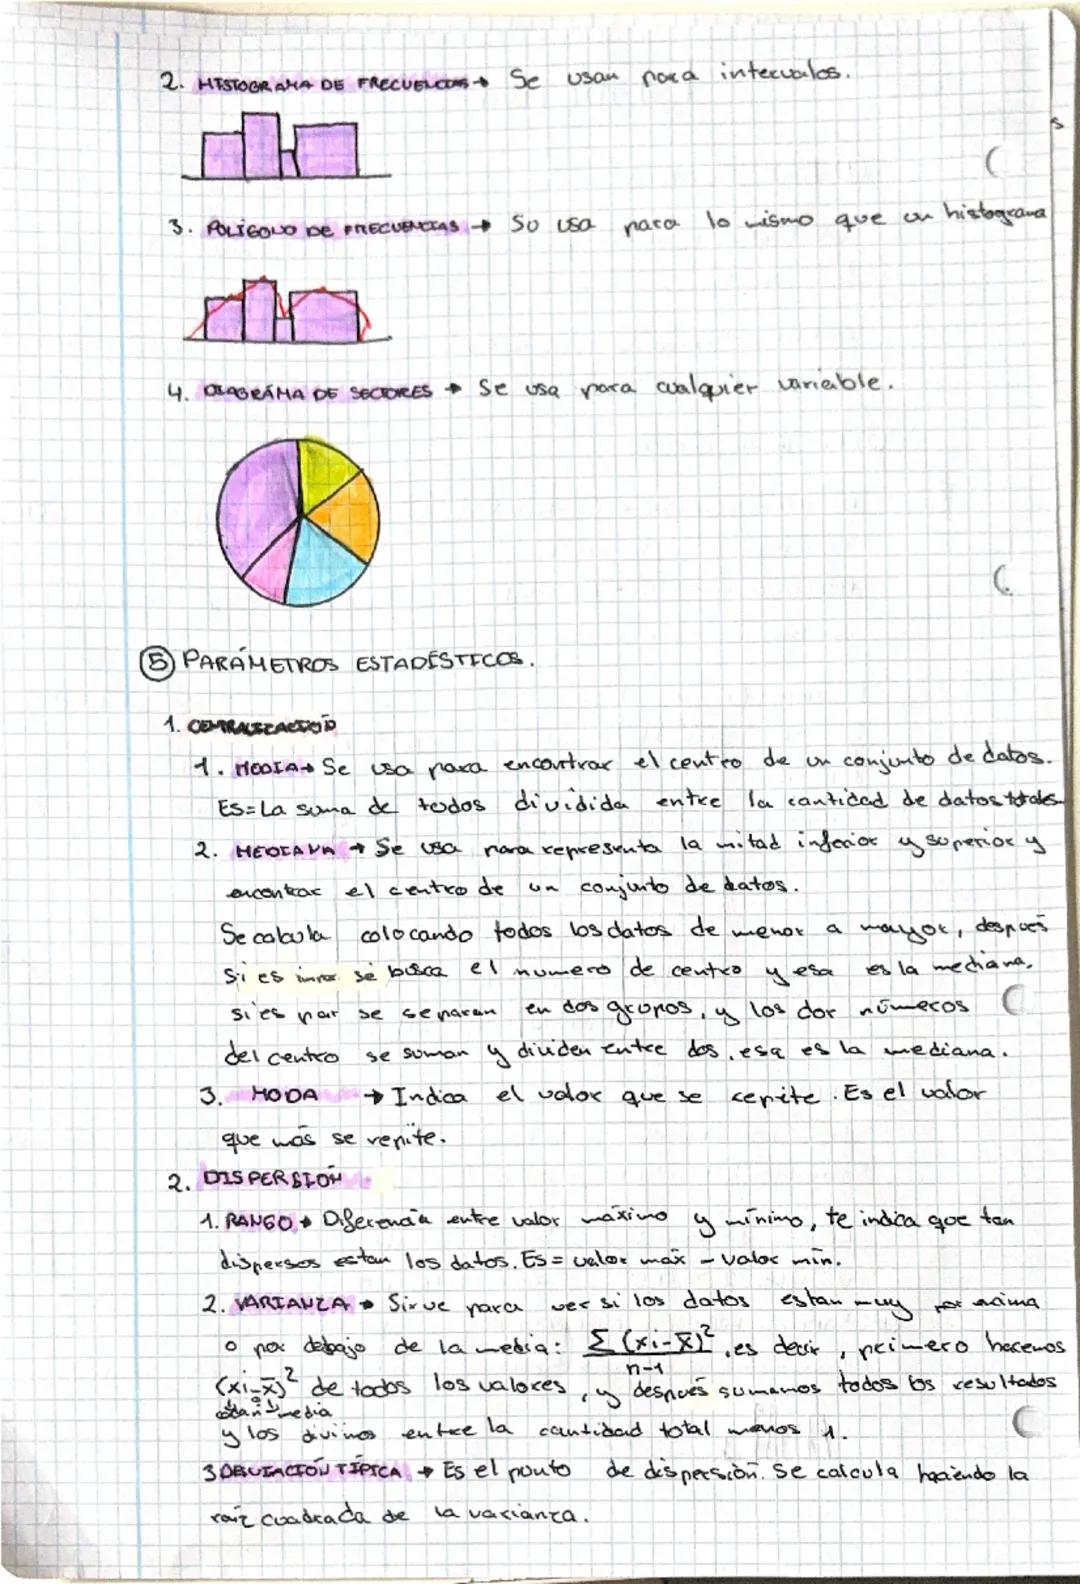 2. HISTOGRAMA DE FRECUENCIAS → Se usan para intervalos.
s
3. POLÍGONO DE FRECUENCIAS → So usa para lo mismo que un histograma
4. DIAGRAMA DE SECTORES → Se usa para cualquier variable.
⑤ PARÁMETROS ESTADÍSTICOS.
1. CENTRALIZACIÓN
1. MEDIA → Se usa para encontrar el centro de un conjunto de datos.
Es = La suma de todos dividida entre la cantidad de datos totales
2. MEDIANA → Se usa para representa la mitad inferior y superior y
encontrar el centro de un conjunto de datos.
Se calcula colocando todos los datos de menor a mayor, después
Si es impar se busca el numero de centro y esa es la mediana,
si es par se separan en dos grupos, y los dor números
del centro se suman y dividen entre dos, esa es la mediana.
3. MODA → Indica el valor que se repite. Es el valor
que más se repite.
2. DISPERSIÓN
1. RANGO → Diferencia entre valor máximo y mínimo, te indica que tan
dispersos estan los datos. Es = valor max - valor min.
2. VARIANZA → Sirve para ver si los datos estan muy por encima
o por debajo de la media: Σ(xi-x̄)²
n-1
, es decir, primero hacemos
(xi-x̄)² de todos los valores, y después sumamos todos los resultados
dato media
y los dividimos entre la cantidad total menos 1.
3 DESVIACIÓN TÍPICA → Es el punto de dispersión. Se calcula haciendo la
raíz cuadrada de la varianza.